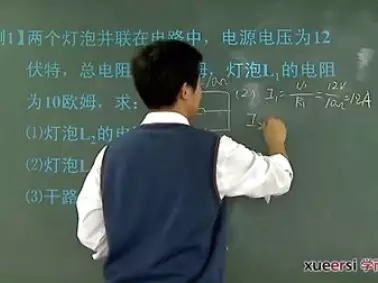 例1】两个灯泡并联在电路中，电源电压为12
伏特，总电阻 姆，灯泡L₁的电阻
为10欧姆，求：
⑴灯泡L₂的电
⑵灯泡L
⑶干路
10Ω
(2) I₁=U₁/R₁=12V/10Ω=12A
I₂
xueersi 学而